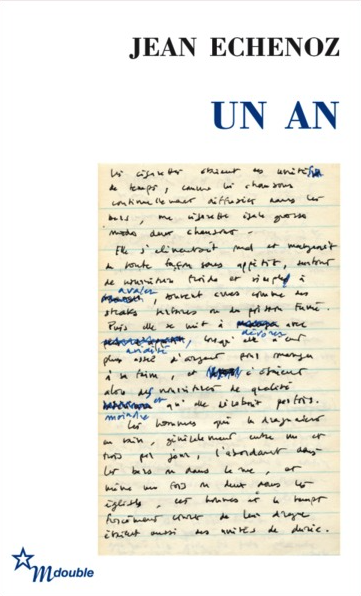 JEAN ECHENOZ
UN AN
Les cigarettes étaient des unités
de temps, comme les chansons
continuellement diffusées dans les
bars, une cigarette égale grosso
modo deux chansons.
Elle s'alimentait mal et mangeait
de toute façon sans appétit, surtout
de nourritures froides et simples à
avaler
souvent crues comme des
steaks tartares ou du poisson fumé.
Puis elle se mit à avec
dévorer
ensuite
lorsqu'elle n'eut
plus assez d'argent pour manger
à sa faim, et c'étaient
alors des nourritures de qualité
et qu'elle
moindre
Les hommes qui la draguaient
en vain, généralement entre un et
trois par jour, l'abordant dans
les bars ou dans la rue, et
même une fois ou deux dans les
églises, ces hommes et le temps
forcément court de leur drague
étaient aussi des unités de durée.
M double